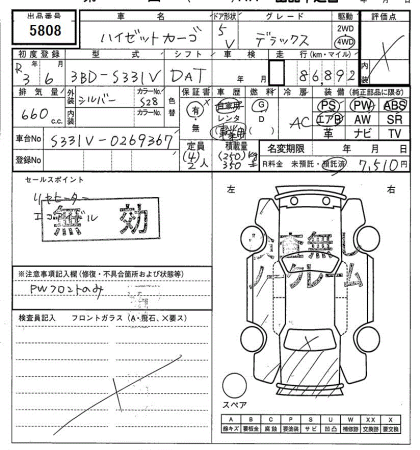 出品番号 車名 ドア形状 グレード 駆動 評価点
5808 ハイゼットカーゴ 5 V デラックス 2WD 4WD
初度登録 型式 シフト 車検 走行(km・マイル)
R3 6 3BD-S331V DAT 年 月 86,892
排気量 外装 シルバー カラーNo. S28 色替 保証書 車歴 燃料 冷房 装備(純正部品に限る)
660 c.c. 内装 カラーNo. 有・無 自家用 レンタ G D AC PS PW ABS
エアB AW SR
革 ナビ TV
車台No S331V-0269367 定員 (4) 2人 積載量 (250) 350 kg
登録No 名変期限 年 月 日
R料金 未預託・預託済 7,510円
セールスポイント
リヤヒーター
無効
左 右
無
ノークレーム
※注意事項記入欄(修復・不具合箇所および状態等)
PWフロントのみ
検査員記入 フロントガラス(A・飛石、X要ス)
スペア
A B C P S U W X XX
線キズ 要板金 腐蝕 要塗装 サビ 凹凸 補修跡 要交換